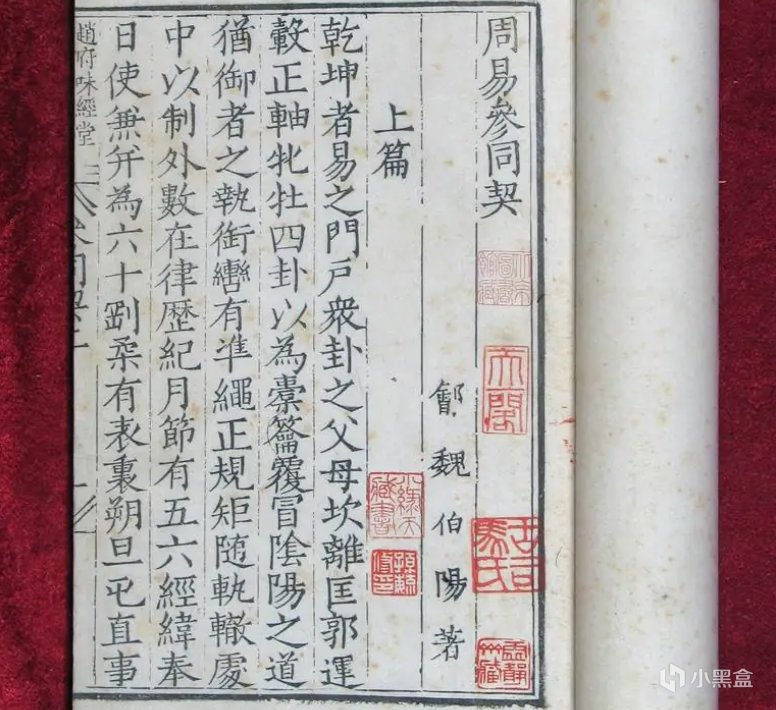 周易參同契
魏伯陽著
上篇
乾坤者易之門戶衆卦之父母坎離匡郭運
轂正軸牝牡四卦以為橐籥覆冒陰陽之道
猶御者之執銜轡有準繩正規矩隨軌轍處
中以制外數在律歴紀月節有五六經緯奉
日使兼并為六十剛柔有表裏朔旦屯直事
趙府味經堂
天一閣
古司馬氏
小黑盒